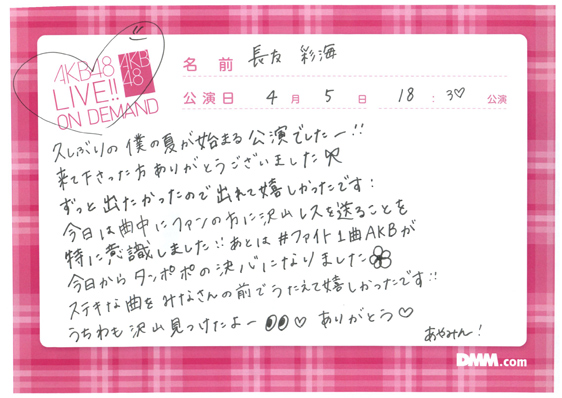 AKB48
LIVE!!
ON DEMAND
AKB
48
名前 長友 彩海
公演日 4月 5日 18:30 公演
久しぶりの僕の夏が始まる公演でしたー!!
来て下さった方ありがとうございました
ずっと出たかったので出れて嬉しかったです:
今日は曲中にファンの方に沢山レスを送ることを
特に意識しました!! あとは#ファイト1曲AKBが
今日からタンポポの決心になりました
ステキな曲をみなさんの前でうたえて嬉しかったです!!
うちわも沢山見つけたよー ♡ ありがとう♡
あやみん!
DMM.com